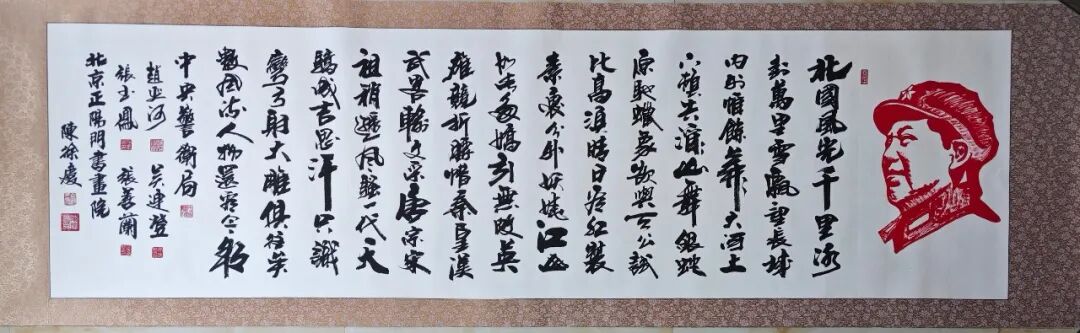 北國風光千里冰
封萬里雪飄望長城
内外惟餘莽〻大河上
下頓失滔〻山舞銀蛇
原馳蠟象欲與天公試
比高須晴日看紅裝
素裹分外妖嬈江山
如此多嬌引無數英
雄競折腰惜秦皇漢
武畧輸文采唐宗宋
祖稍遜風騷一代天
驕成吉思汗只識
彎弓射大雕俱往矣
數風流人物還看今朝
中央警衛局
趙亞河 吳連登
張玉鳳 張善蘭
北京正陽門書畫院
陳徐慶